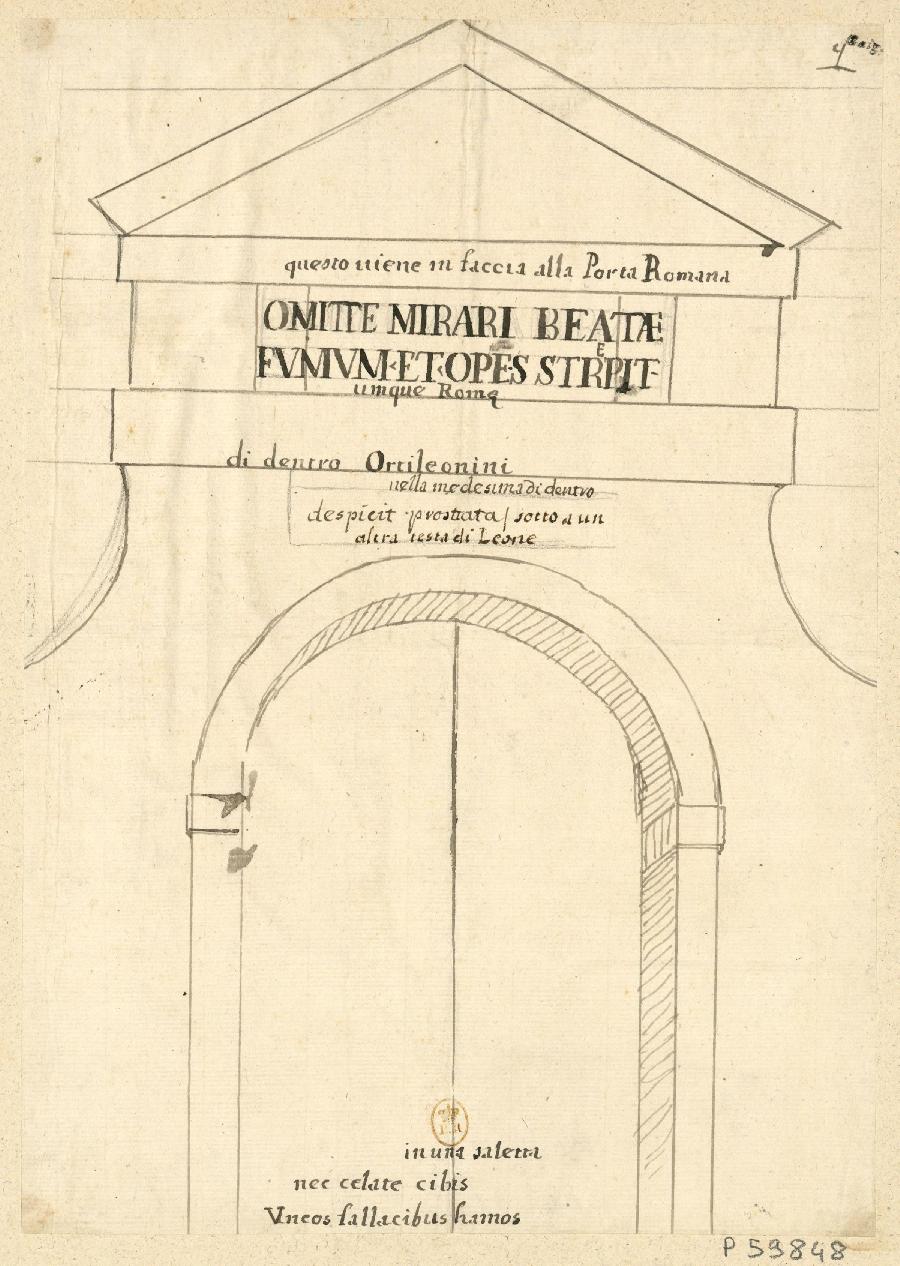 questo uiene in faccia alla Porta Romana
OMITTE MIRARI BEATÆ
FVMVM·ET·OPES STREPIT
umque Romę
di dentro Ortileonini
nella medesima di dentro
despicit prostrata / sotto a un
altra testa di Leone
in una saletta
nec celate cibis
Vncos fallacibus hamos
P 59848